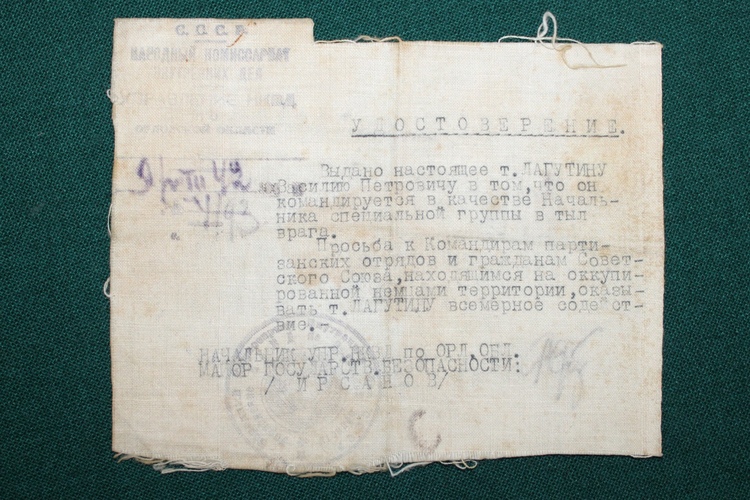 С.С.С.Р.
НАРОДНЫЙ КОМИССАРИАТ
ВНУТРЕННИХ ДЕЛ
УПРАВЛЕНИЕ НКВД
ОРЛОВСКОЙ ОБЛАСТИ
9/VIII 42
УДОСТОВЕРЕНИЕ.
Выдано настоящее т.ЛАГУТИНУ
Василию Петровичу в том,что он
командируется в качестве Началь-
ника специальной группы в тыл
врага.
Просьба к Командирам парти-
занских отрядов и гражданам Совет-
ского Союза,находящимся на оккупи-
рованной немцами территории,оказы-
вать т.ЛАГУТИНУ всемерное содейст-
вие.-
НАЧАЛЬНИК УПР.НКВД по ОРЛ.ОБЛ.
МАЙОР ГОСУДАРСТВ.БЕЗОПАСНОСТИ:
/ФИРСАНОВ/